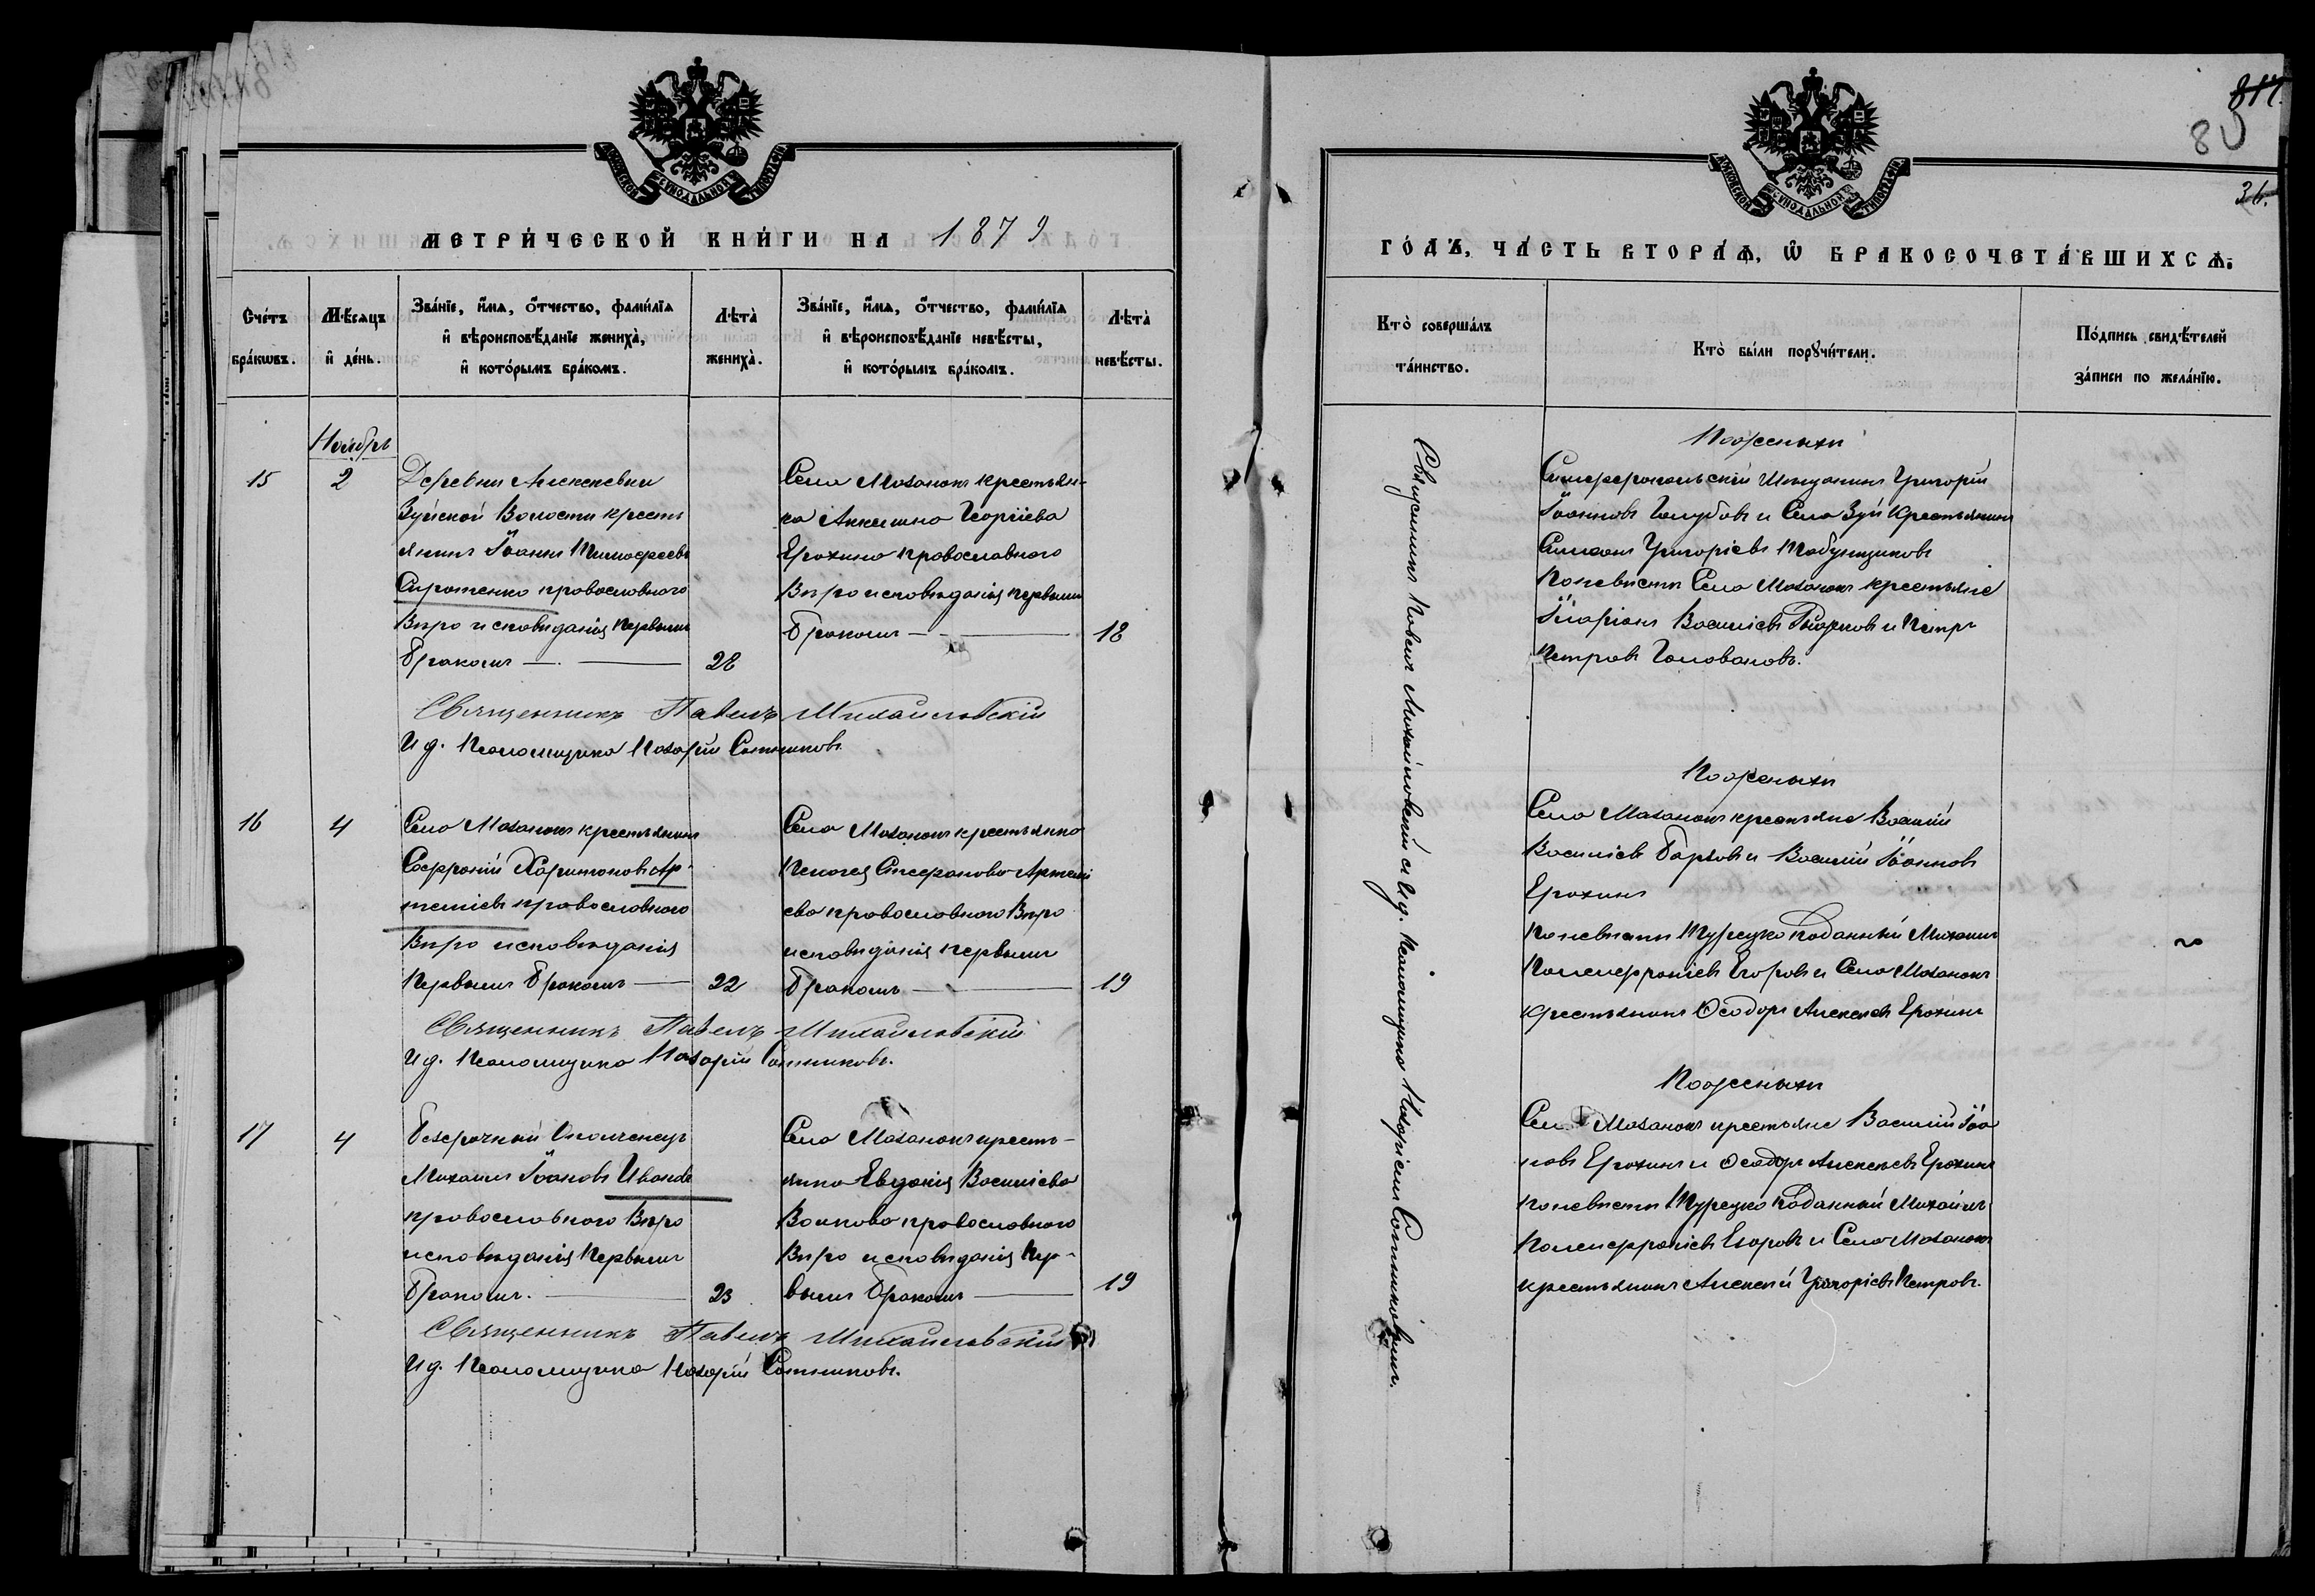 МЕТРИ́ЧЕСКОЙ КНИ́ГИ НА 1879
Сче́тъ бра́кωвъ.
Мѣ́сяцъ и де́нь.
Зва́нїе, и́мѧ, о́тчество, фами́лїѧ и҆ вѣроисповѣ́данїе жениха̀, и҆ кото́рымъ бра́комъ.
Лѣта̀ жениха̀.
Зва́нїе, и́мѧ, о́тчество, фами́лїѧ и҆ вѣроисповѣ́данїе невѣ́сты, и҆ кото́рымъ бра́комъ.
Лѣта̀ невѣ́сты.
Ноябрь
15
2
Деревни Алексеевки
Зуйской Волости кресть
янинъ Іоаннъ Тимофеевъ
Сиротенко православнаго
Вѣро исповѣданія первымъ
бракомъ
28
Села Мазанки крестьян-
ка Акилина Георгіева
Ерохина православнаго
Вѣро исповѣданія первымъ
бракомъ
18
Священникъ Павелъ Михайловскій
И д. Паломщика Назарій Сотниковъ.
16
4
Села Мазанки крестьянинъ
Софроній Харитоновъ Ар-
темьевъ православнаго
Вѣро исповѣданія
Первымъ бракомъ
22
Села Мазанки крестьянка
Пелагея Стефанова Артемі
ева православнаго Вѣро
исповѣданія первымъ
бракомъ
19
Священникъ Павелъ Михайловскій
И д. Паломщика Назарій Сотниковъ.
17
4
Безсрочный Ополченецъ
Михаилъ Іоановъ Ивановъ
православнаго Вѣро
исповѣданія Первымъ
бракомъ.
23
Села Мазанки кресть-
янка Евдокія Василіева
Волкова православнаго
Вѣро исповѣданія Пер-
вымъ бракомъ
19
Священникъ Павелъ Михайловскій
И д. Паломщика Назарій Сотниковъ.
817.
80
36.
ГО́ДЪ, ЧА́СТЬ ВТОРА́Ѧ, Ѽ БРАКОСОЧЕТА́ВШИХСѦ:
Кто̀ соверша́лъ та́инство.
Кто̀ бы́ли порꙋчи́тели.
По́дпись свидѣ́телей за́писи по жела́нїю.
Священникъ Павелъ Михайловскій с И д. Паломщика Назаріемъ Сотниковымъ.
По женихи
Симферопольскій Мещанинъ Григорій
Іоанновъ Голубовъ и Села Зуи Крестьянинъ
Симеонъ Григоріевъ Табунщиковъ
По невисти Села Мазанки крестьяне
Василіевъ и Петръ
Петровъ Головановъ.
По женихи
Села Мазанки крестьяне Василій
Василіевъ и Василій Іоанновъ
Ерохинъ
По невисти Турецко поданный Михаилъ
Егоровъ и Села Мазанки
крестьянинъ Ѳеодоръ Алексеевъ Ерохинъ
По женихи
Села Мазанки крестьяне Василій Іоа
новъ Ерохинъ и Ѳеодоръ Алексеевъ Ерохинъ
по невисти Турецко поданный Михаилъ
Егоровъ и Села Мазанки
крестьянинъ Алексей Григоріевъ Петровъ.